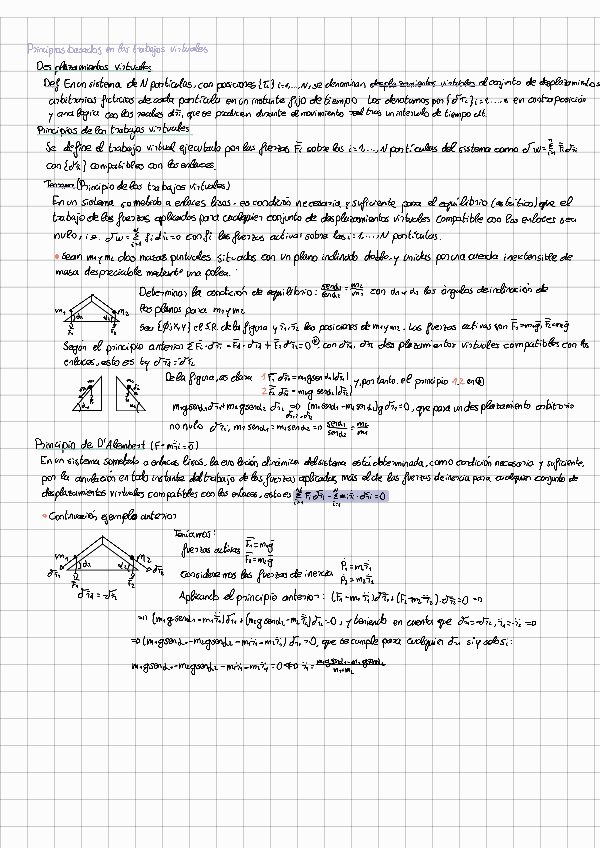 Principios basados en los trabajos virtuales
Desplazamientos virtuales
Def En un sistema de N partículas, con posiciones {r̄i} i=1,...,N, se denominan desplazamientos virtuales al conjunto de desplazamientos
arbitrarios ficticios de cada partícula en un instante fijo de tiempo. Los denotamos por {δr̄i} i=1,...,N en contraposición
y analogía con los reales dr̄i, que se producen durante el movimiento real tras un intervalo de tiempo dt.
Principios de los trabajos virtuales
Se define el trabajo virtual ejecutado por las fuerzas F̄i sobre los i=1,...,N partículas del sistema como δW=Σ F̄i δr̄i
con {δr̄i} compatibles con los enlaces.
Teorema (Principio de los trabajos virtuales)
En un sistema sometido a enlaces lisos, es condición necesaria y suficiente para el equilibrio (estático) que el
trabajo de las fuerzas aplicadas para cualquier conjunto de desplazamientos virtuales compatible con los enlaces sea
nulo, i.e. δW=Σ fi δr̄i=0 con fi las fuerzas activas sobre los i=1,...,N partículas.
• Sean m1 y m2 dos masas puntuales situadas con un plano inclinado doble y unidas por una cuerda inextensible de
masa despreciable mediante una polea.
Determinar la condición de equilibrio: senα1/senα2 = m2/m1 con α1 y α2 los ángulos de inclinación de
los planos para m1 y m2
Sea {O;X,Y} el S.R. de la figura y r̄1, r̄2 las posiciones de m1 y m2. Las fuerzas activas son F̄1=m1ḡ, F̄2=m2ḡ
Según el principio anterior Σ F̄i·δr̄i = F̄1·δr̄1 + F̄2 δr̄2=0 ⊕, con δr̄1, δr̄2 desplazamientos virtuales compatibles con los
enlaces, esto es
De la figura, es claro 1 F̄1 δr̄1=m1gsenα1|δr̄1| y, por tanto, el principio 1,2 en ⊕
2 F̄2 δr̄2=
⇒ (m1senα1-m2senα2)gδr̄1=0, que para un desplazamiento arbitrario
no nulo δr̄1, m1senα1=m2senα2 ⇒ senα1/senα2 = m2/m1
Principio de D'Alembert (F̄-mr̈=0̄)
En un sistema sometido a enlaces lisos, la evolución dinámica del sistema está determinada, como condición necesaria y suficiente,
por la anulación en todo instante del trabajo de las fuerzas aplicadas, más el de las fuerzas de inercia para cualquier conjunto de
desplazamientos virtuales compatibles con los enlaces, esto es Σ F̄i δr̄i - Σ mi r̈i · δr̄i=0
• Continuación ejemplo anterior
Teníamos:
fuerzas activas F̄1=m1ḡ
F̄2=m2ḡ
Consideremos las fuerzas de inercia Ṗ1=m1r̈1
Ṗ2=m2r̈2
Aplicando el principio anterior: (F̄1-m1r̈1)δr̄1+(F̄2-m2r̈2)·δr̄2=0 ⇒
⇒ (m1gsenα1-m1r̈1)δr̄1+(m2gsenα2-m2r̈2)δr̄2=0, y teniendo en cuenta que δr̄1=-δr̄2, r̈1=-r̈2 ⇒
⇒ (m1gsenα1-m2gsenα2-m1r̈1-m2r̈1)δr̄1=0, que se cumple para cualquier δr̄1 si y solo si:
m1gsenα1-m2gsenα2-m1r̈1-m2r̈1=0 ⇔ r̈1= (m1gsenα1-m2gsenα2)/(m1+m2)